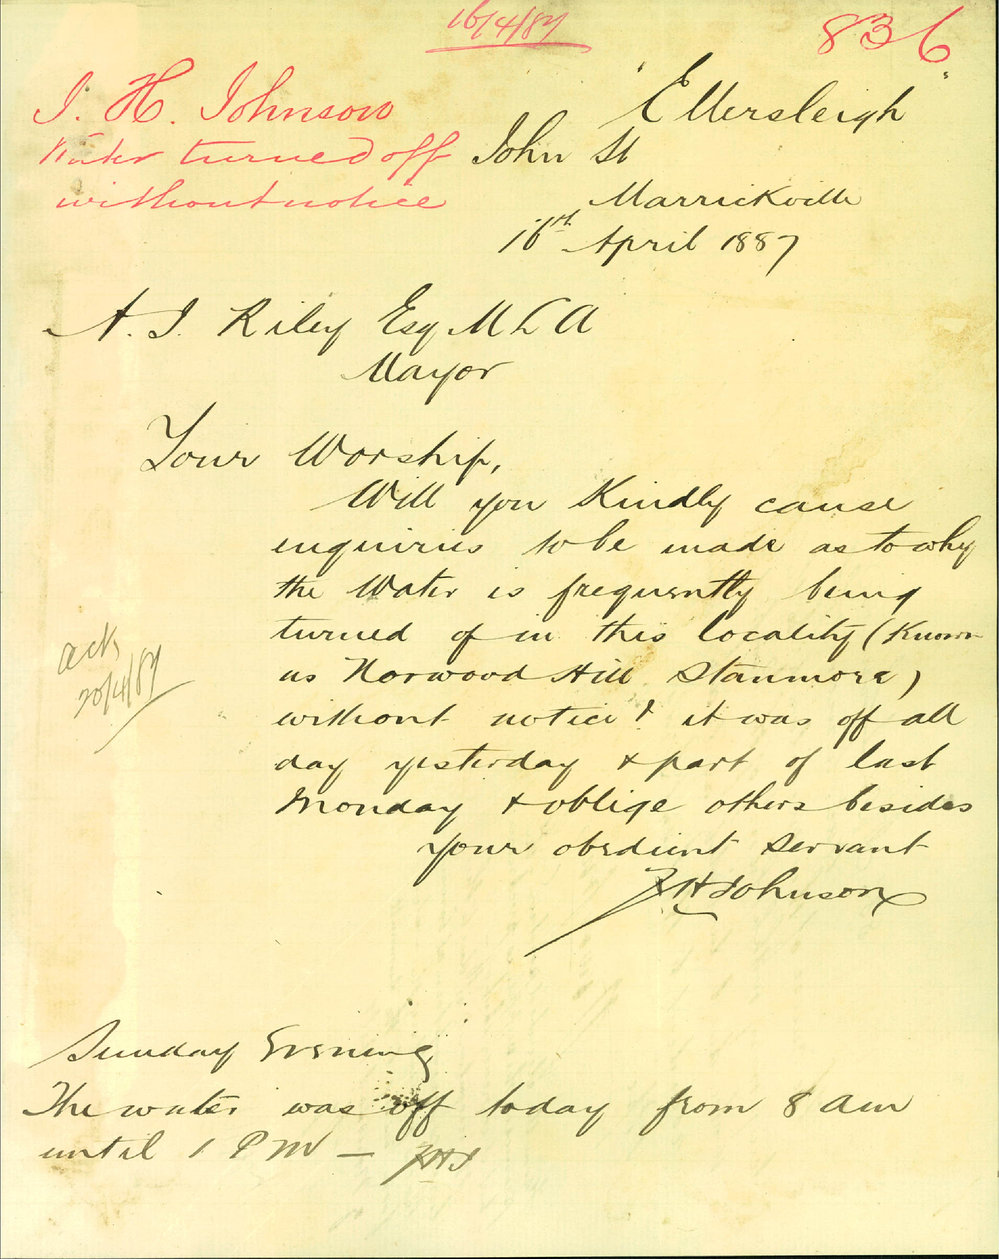 16/4/87
836
J. H. Johnson
Water turned off
without notice
"Ellersleigh"
John St
Marrickville
16th April 1887
A. J. Riley Esq M L A
Mayor
Your Worship,
Will you Kindly cause
enquiries to be made as to why
the Water is frequently being
turned of in this locality (Known
as Norwood Hill Stanmore)
without notice? it was off all
day yesterday & part of last
Monday & oblige others besides
your obedient servant
J H Johnson
ack
20/4/87
Sunday Evening
The water was off today from 8 am
until 1 PM — JHJ